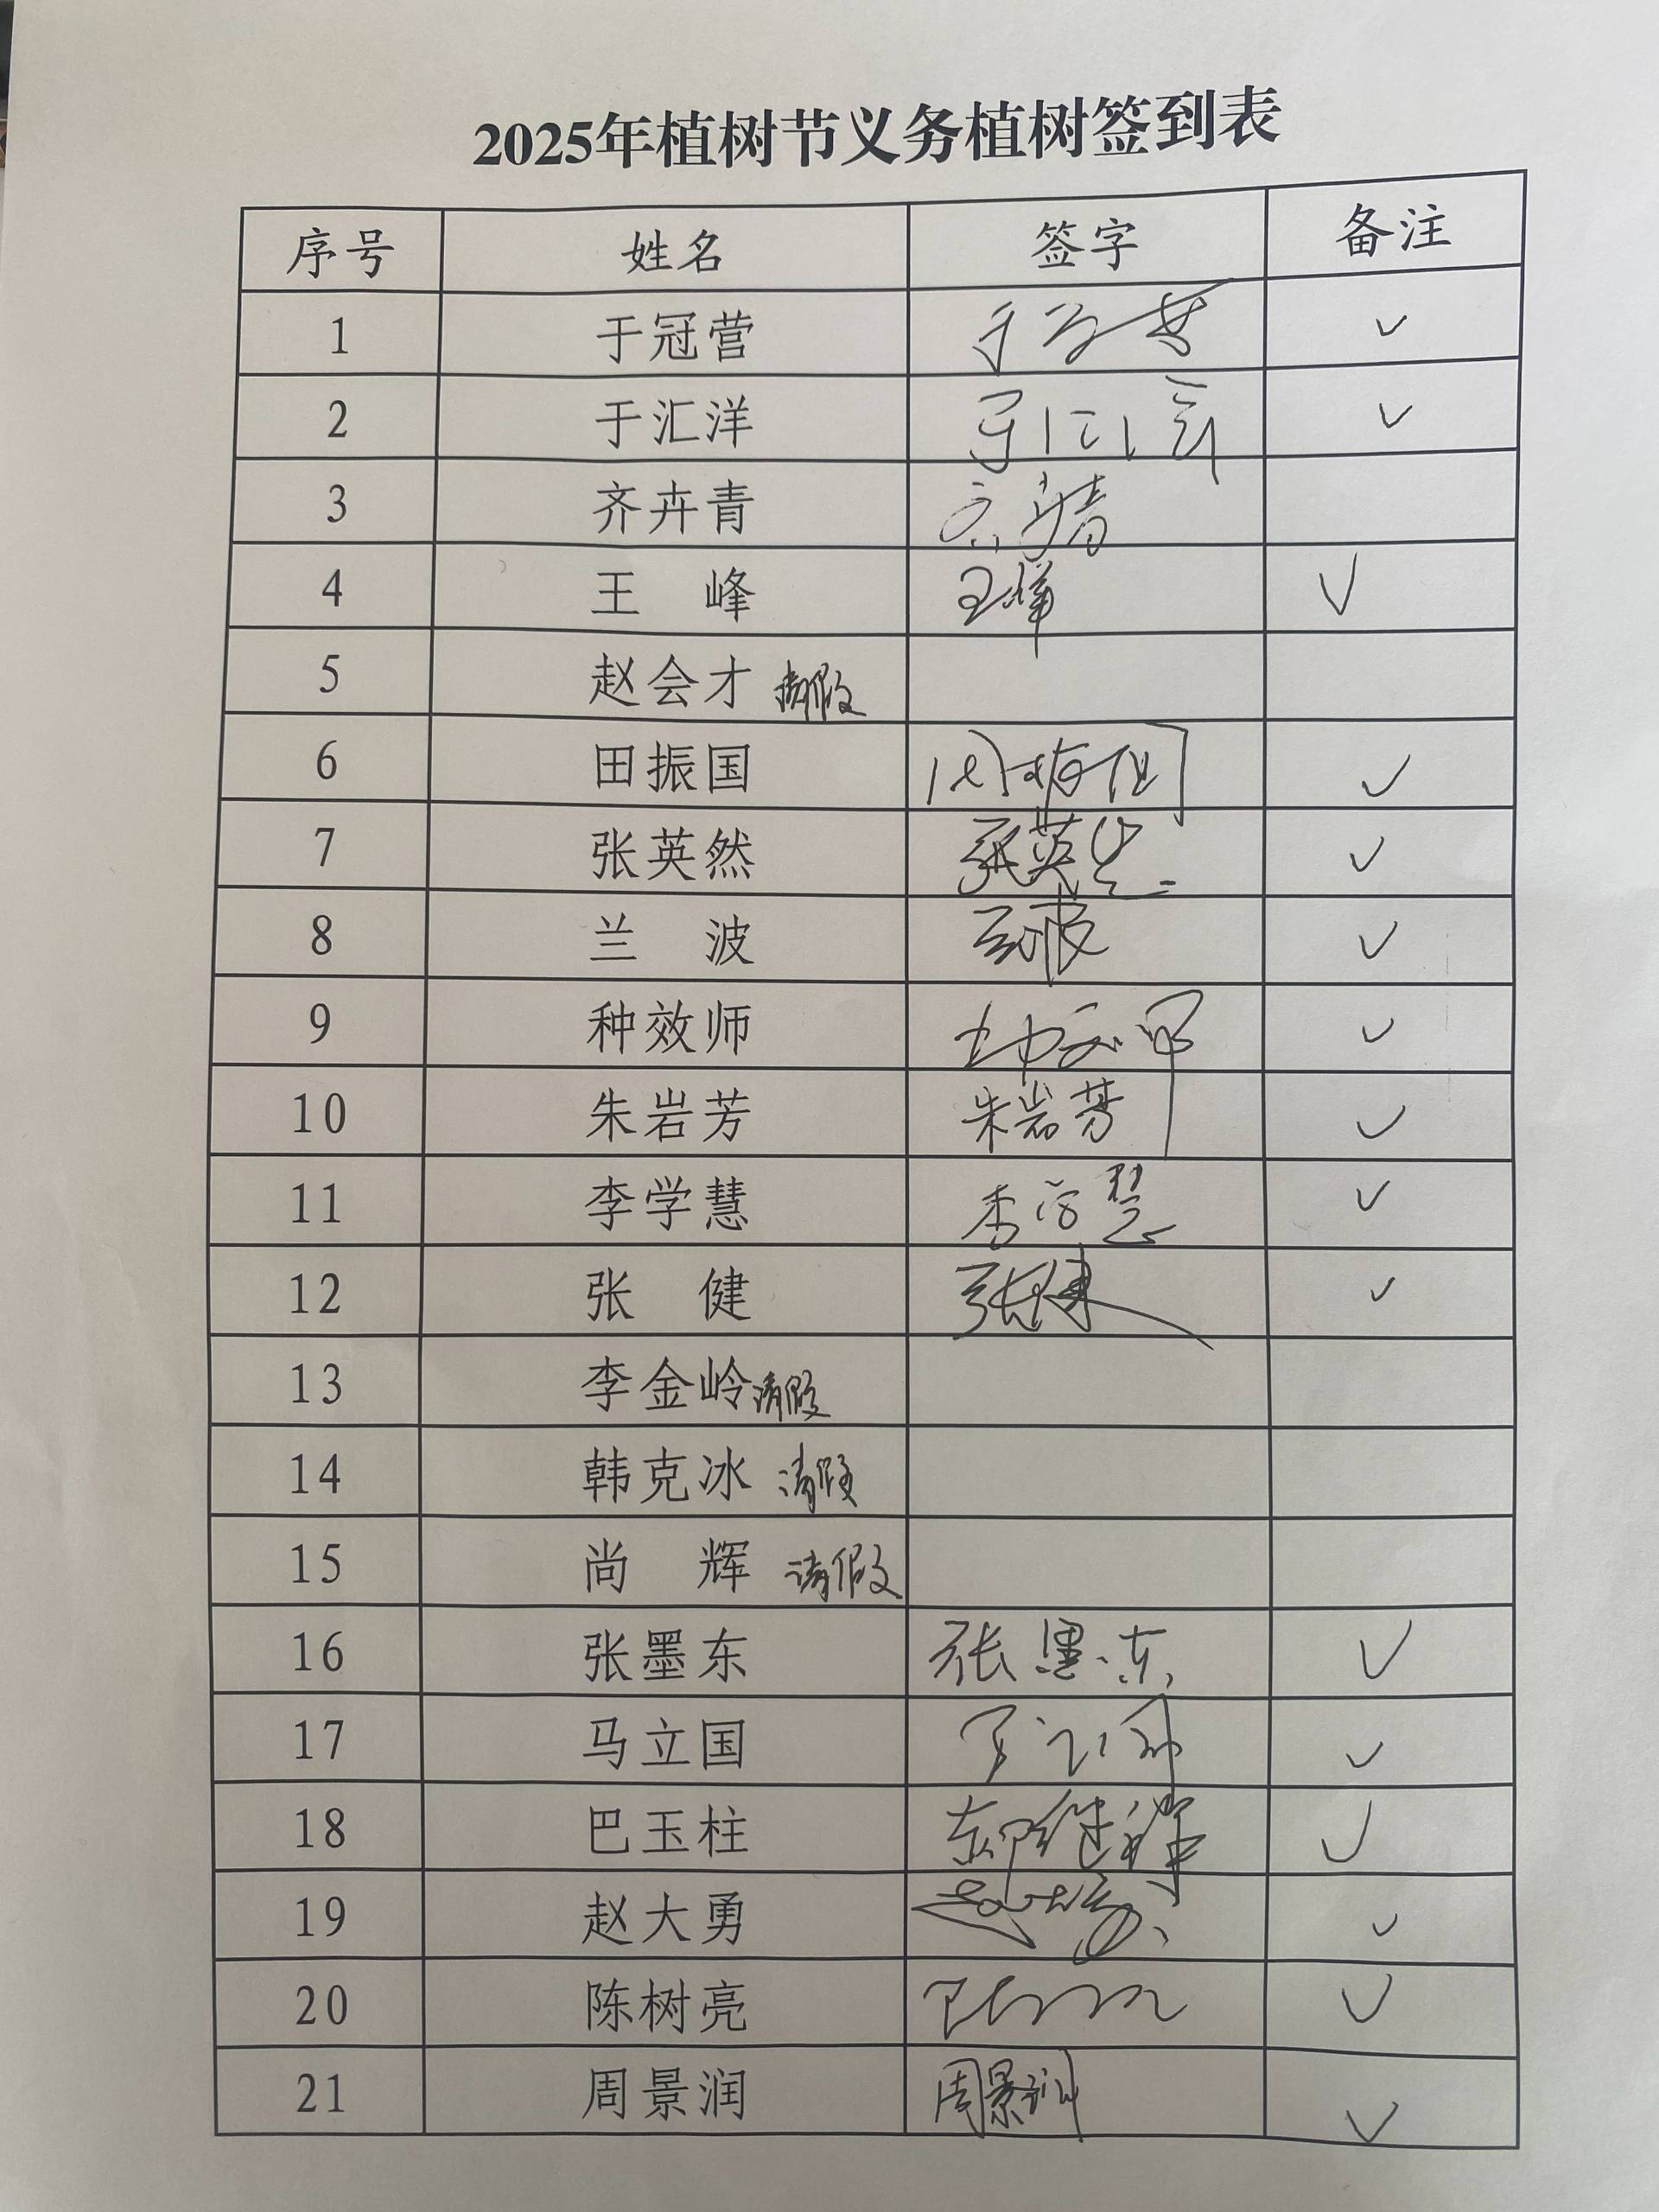 2025年植树节义务植树签到表
序号 姓名 签字 备注
1 于冠营 于冠营 ✓
2 于汇洋 于汇洋 ✓
3 齐卉青 齐卉青
4 王 峰 王峰 ✓
5 赵会才 请假
6 田振国 田振国 ✓
7 张英然 张英然 ✓
8 兰 波 兰波 ✓
9 种效师 种效师 ✓
10 朱岩芳 朱岩芳 ✓
11 李学慧 李学慧 ✓
12 张 健 张健 ✓
13 李金岭 请假
14 韩克冰 请假
15 尚 辉 请假
16 张墨东 张墨东 ✓
17 马立国 马立国 ✓
18 巴玉柱 ✓
19 赵大勇 赵大勇 ✓
20 陈树亮 ✓
21 周景润 周景润 ✓